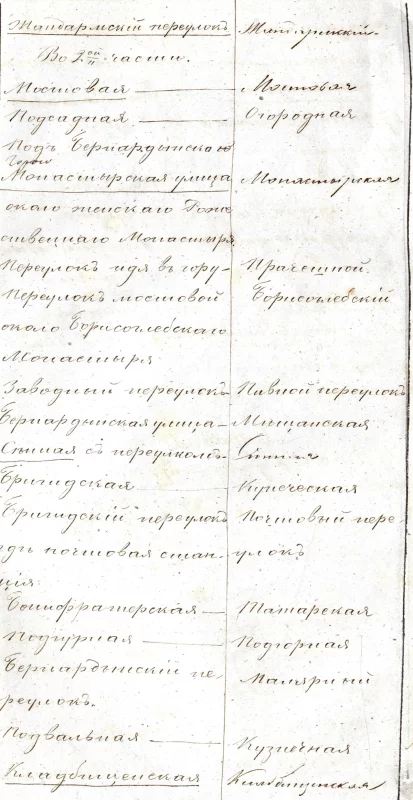 Жандармскій переулокъ Жандармскій.
Во 2ой части.
Мостовая Мостовая
Подсадная Огородная
Подъ Бернардынскою
горою
Монастырская улица Монастырская
около женскаго Рож-
ственнаго Монастыря
Переулокъ идя въ гору Прачешной.
Переулокъ мостовой Борисоглебскій
около Борисоглебскаго
Монастыря
Заводный переулокъ Пивной переулокъ
Бернардынская улица Мещанская
Сенная съ переулкомъ Сенная
Бригидская Купеческая
Бригидскій переулокъ Почтовый пере-
гдѣ почтовая стан- улокъ
ція
Бонифратерская Татарская
Подгурная Подгорная
Бернардынскій пе- Малярный
реулокъ.
Подвальная Кузнечная
Кладбищенская Кладбищенская